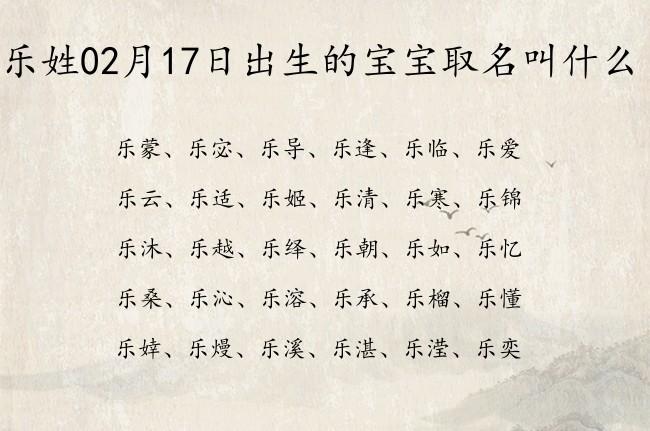 乐姓02月17日出生的宝宝取名叫什么
乐蒙、乐宓、乐导、乐逢、乐临、乐爱
乐云、乐适、乐姬、乐清、乐寒、乐锦
乐沐、乐越、乐绎、乐朝、乐如、乐忆
乐桑、乐沁、乐溶、乐承、乐榴、乐懂
乐婞、乐熳、乐溪、乐湛、乐滢、乐奕